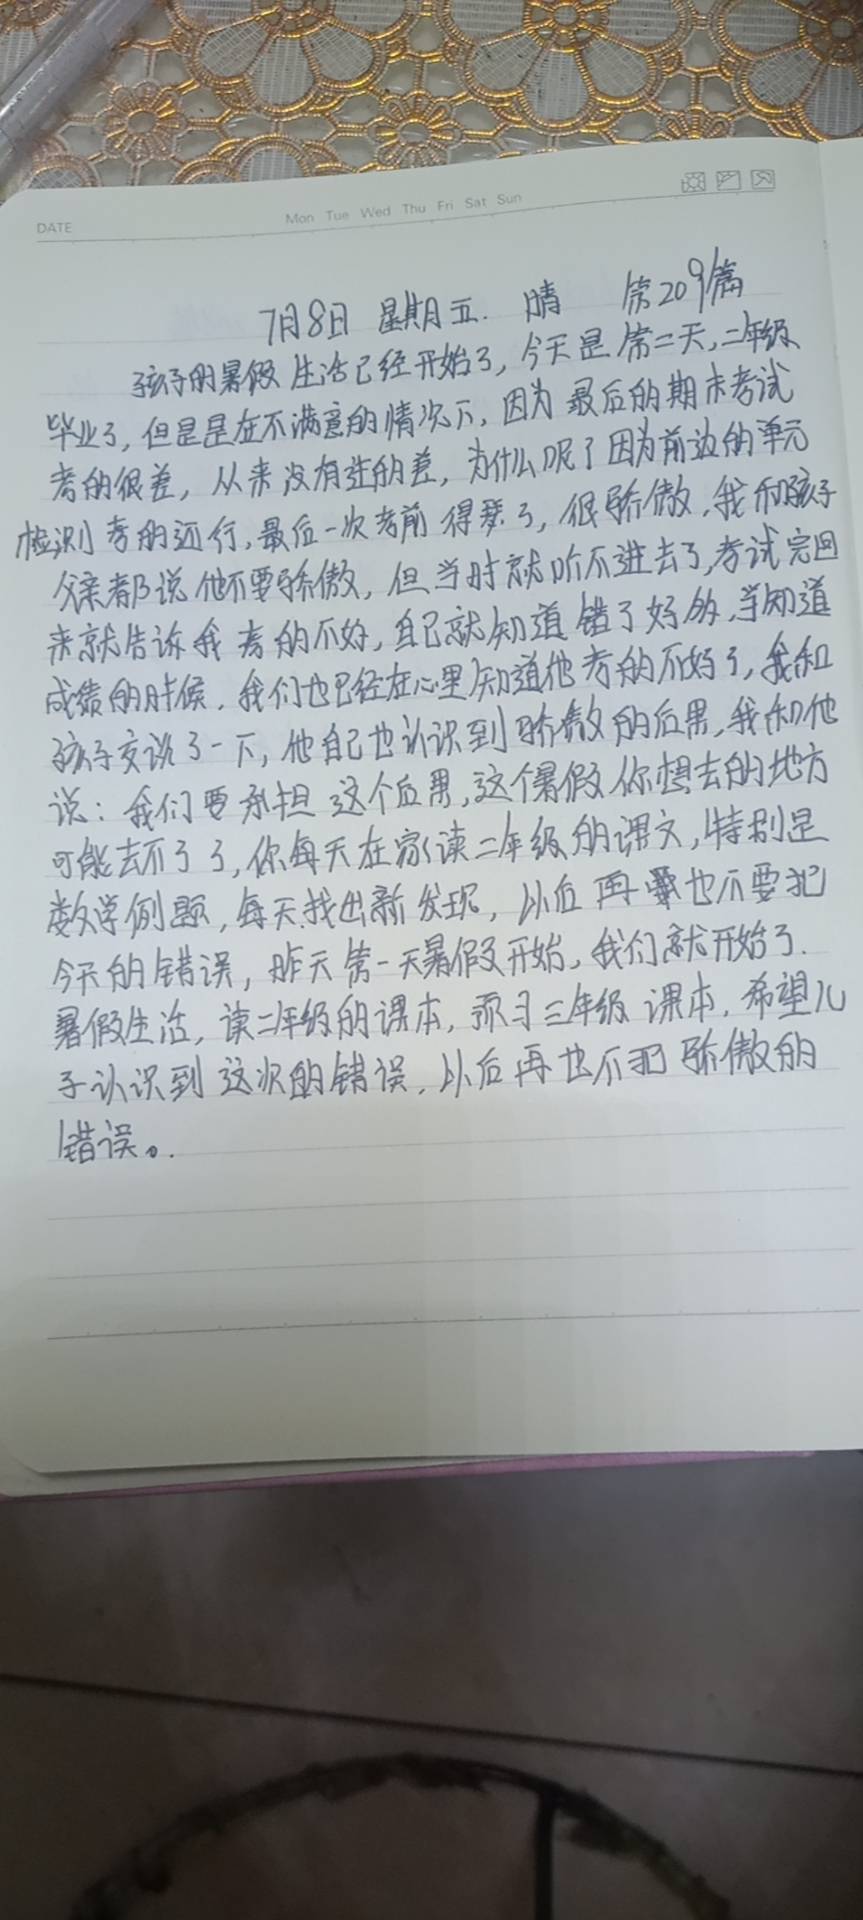 DATE
Mon Tue Wed Thu Fri Sat Sun
7月8日 星期五. 晴 第209篇
孩子的暑假生活已经开始了,今天是第二天,二年级
毕业了,但是是在不满意的情况下,因为最后的期末考试
考的很差,从来没有这的差,为什么呢?因为前边的单元
检测考的还行,最后一次考前得瑟了,很骄傲,我和孩子
父亲都说他不要骄傲,但当时就听不进去了,考试完回
来就告诉我考的不好,自己就知道错了好多,当知道
成绩的时候,我们也已经在心里知道他考的不好了,我和
孩子交谈了一下,他自己也认识到骄傲的后果,我和他
说:我们要承担这个后果,这个暑假你想去的地方
可能去不了了,你每天在家读二年级的课文,特别是
数学例题,每天找出新发现,以后再也不要犯
今天的错误,昨天第一天暑假开始,我们就开始了.
暑假生活,读二年级的课本,预习三年级课本,希望儿
子认识到这次的错误,以后再也不犯骄傲的
错误。.